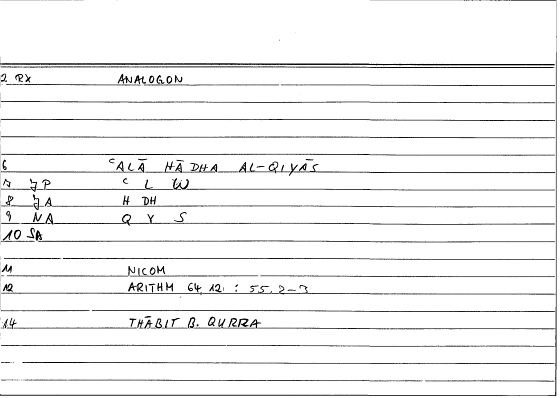 2 RX ANALOGON
6 ʿALĀ HĀDHA AL-QIYĀS
7 JP ʿ L W
8 JA H DH
9 NA Q Y S
10 SA
11 NICOM
12 ARITHM 64,12 : 55.2-3
14 THĀBIT B. QURRA